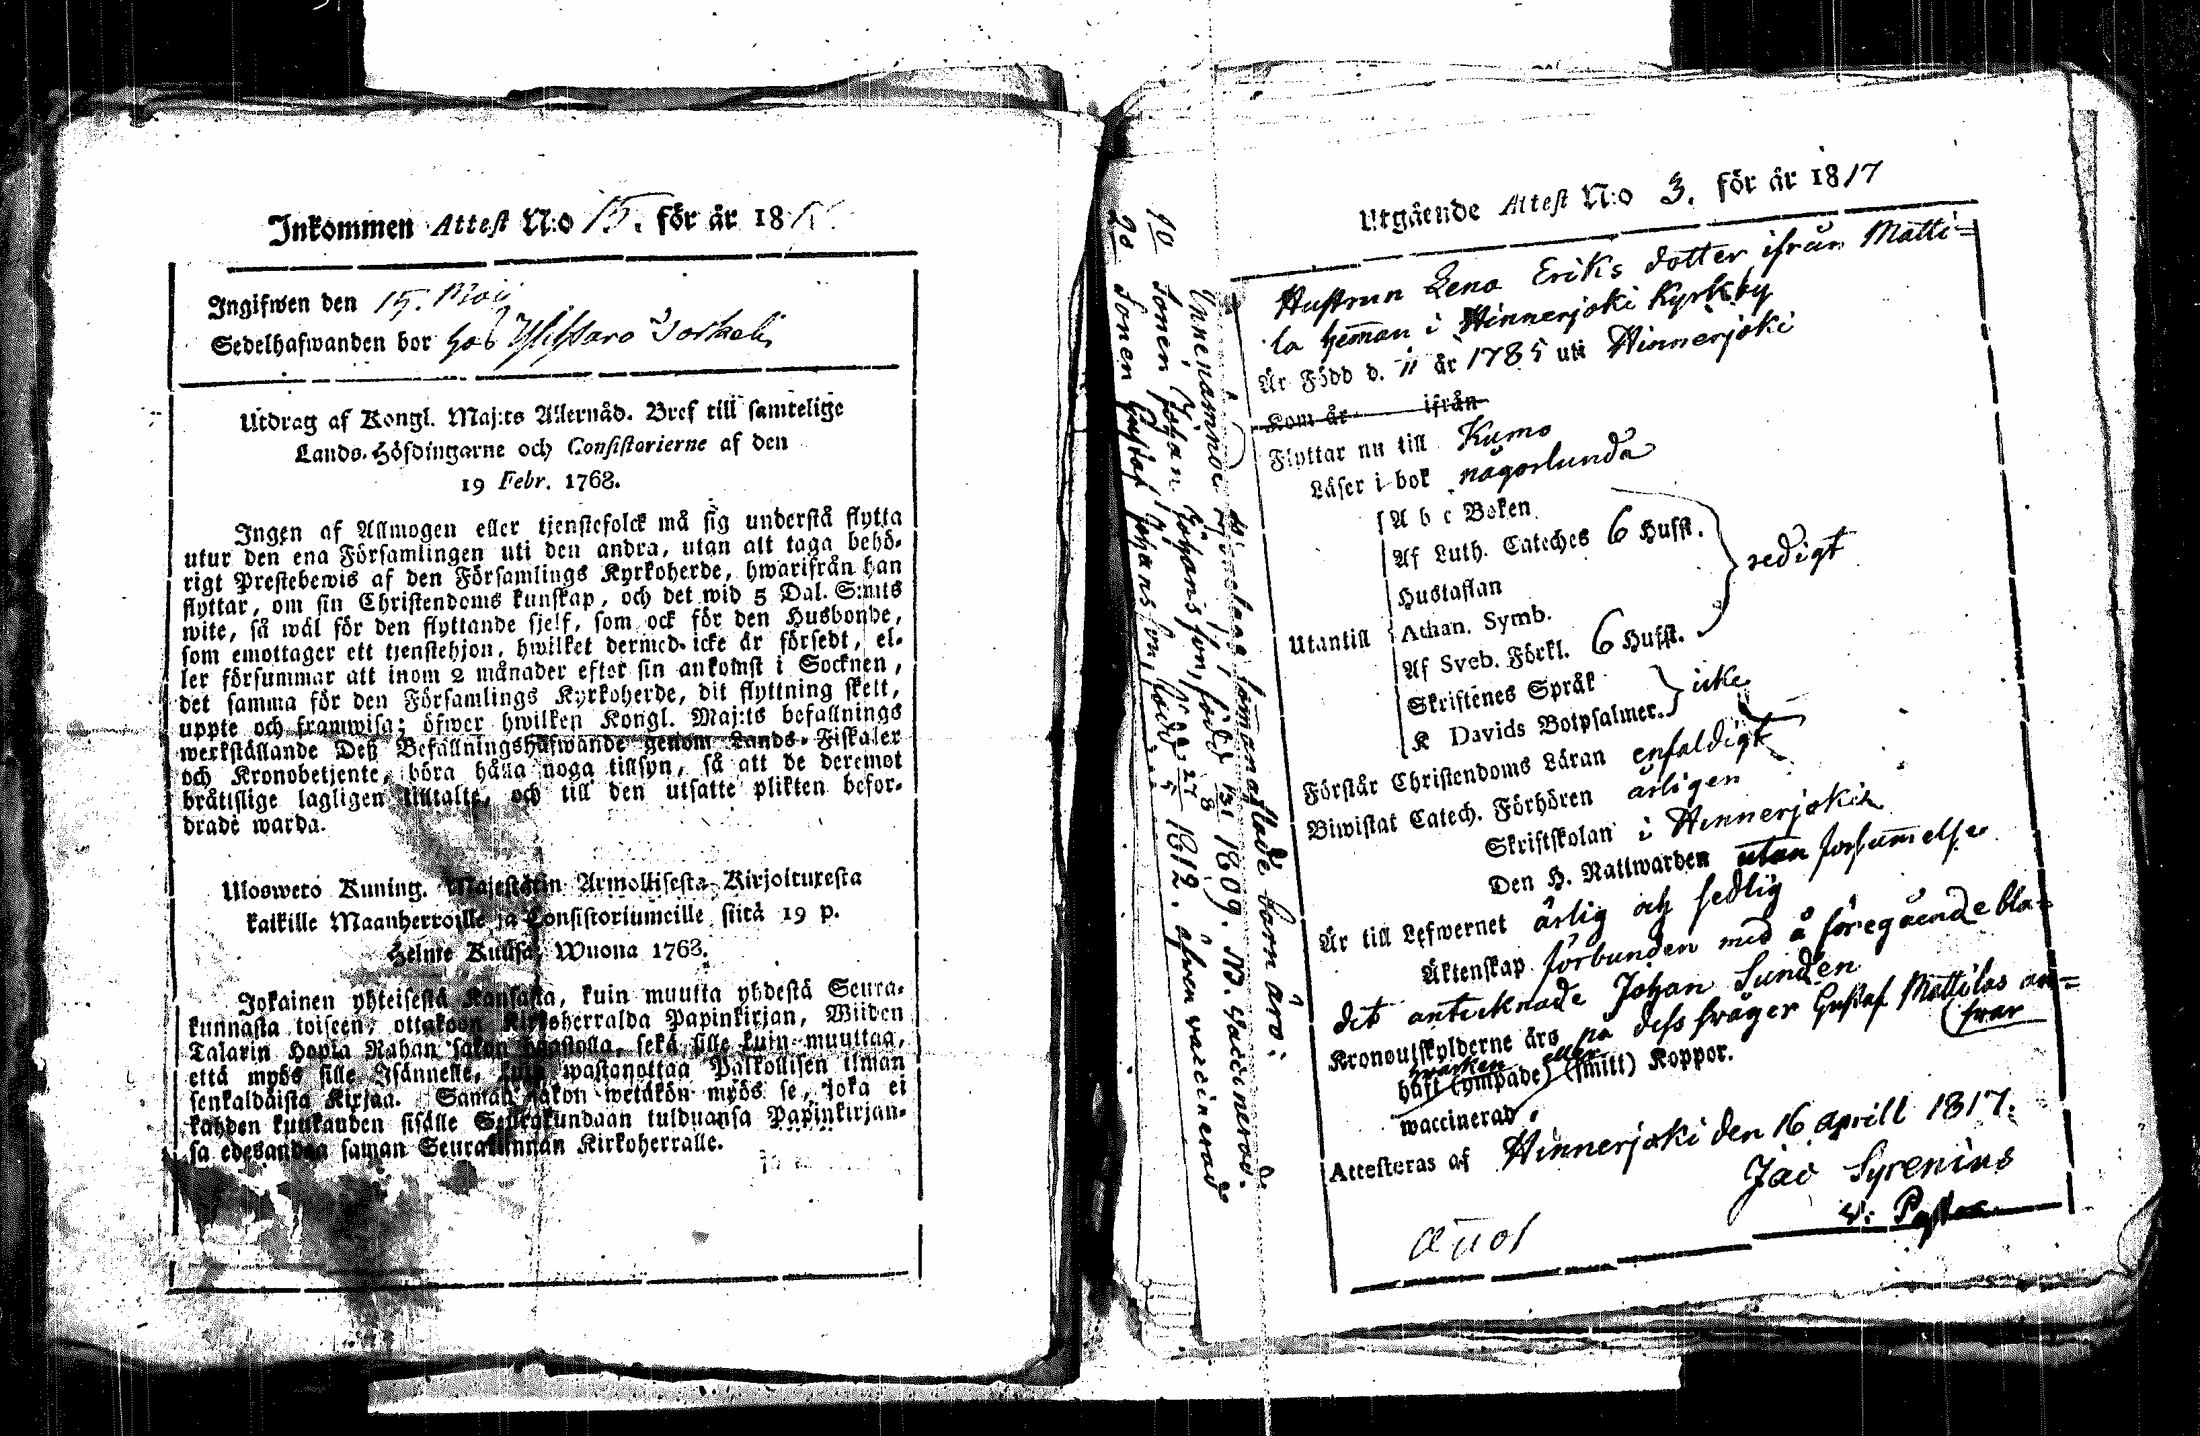 Inkommen Attest N:o 15. för år 18
Ingifwen den 15. Maij
Sedelhafwanden bor hos
Utdrag af Kongl. Maj:ts Allernåd. Bref till samtelige
Lands-Höfdingarne och Consistorierne af den
19 Febr. 1768.
Ingen af Allmogen eller tjenstefolck må sig understå flytta
utur den ena Församlingen uti den andra, utan att taga behö-
rigt Prestebewis af den Församlings Kyrkoherde, hwarifrån han
flyttar, om sin Christendoms kunskap, och det wid 5 Dal. S:mts
wite, så wäl för den flyttande sjelf, som ock för den Husbonde,
som emottager ett tjenstehjon, hwilket dermed icke är försedt, el-
ler försummar att inom 2 månader efter sin ankomst i Socknen,
det samma för den Församlings Kyrkoherde, dit flyttning skett,
uppte och framwisa; öfwer hwilken Kongl. Maj:ts befallnings
werkställande Deß Befallningshafwande genom Lands-Fiskaler
och Kronobetjente, böra hålla noga tillsyn, så att de deremot
bråtislige lagligen tilltalte, och till den utsatte plikten befor-
drade warda.
Ulosweto Kuning. Majestetin Armollisesta Kirjoituxesta
kaikille Maanherroille ja Consistoriumeille siitä 19 p.
Helme Kuusa, Wuona 1768.
Jokainen yhteisestä Kansasta, kuin muutta yhdestä Seura-
kunnasta toiseen, ottakoon Kirkoherralda Papinkirjan, Wiiden
Talarin Hopia Rahan sakon haastolla, sekä sille kuin muuttaa,
että myös sille Isännelle, kuin wastanottaa Palkollisen ilman
senkaldaista Kirjaa. Saman sakon wetäkön myös se, joka ei
kahden kuukauden sisälle Seurakundaan tulduansa Papinkirjan-
sa edesandaa saman Seurakunnan Kirkoherralle.
Utgående Attest N:o 3. för år 1817
Hustrun Lena Eriks dotter ifrån Matti-
la heman i Hinnerjoki Kyrkby
Är Född d. " år 1785 uti Hinnerjoki
Kom år ifrån
Flyttar nu till Kumo
Läser i bok någorlunda
A b c Boken
Af Luth. Cateches 6 Hufst.
Hustaflan
redigt
Utantill
Athan. Symb.
Af Sveb. Förkl. 6 Hufst.
Skriftenes Språk
icke
K Davids Botpsalmer.
Förstår Christendoms Läran enfaldigt
Biwistat Catech. Förhören årligen
Skriftskolan i Hinnerjoki
Den H. Nattwarden utan försumelse
Är till Lefwernet ärlig och sedlig
Äktenskap förbunden med å föregående bla-
det antecknade Johan Sunden
Kronoutskylderne äro på dess swåger Gustaf Mattilas an-
swar
hwarken eller
haft (ympade) (smitt) Koppor.
waccinerad
Attesteras af Hinnerjoki den 16 aprill 1817.
Jac Syrenius
v. Pastor
Innenämndes
barn äro:
1o Sonen Johan Johans son, född 1809. waccinerad.
2o Sonen Gustaf Johans son, född 1812. äfven vaccinerad